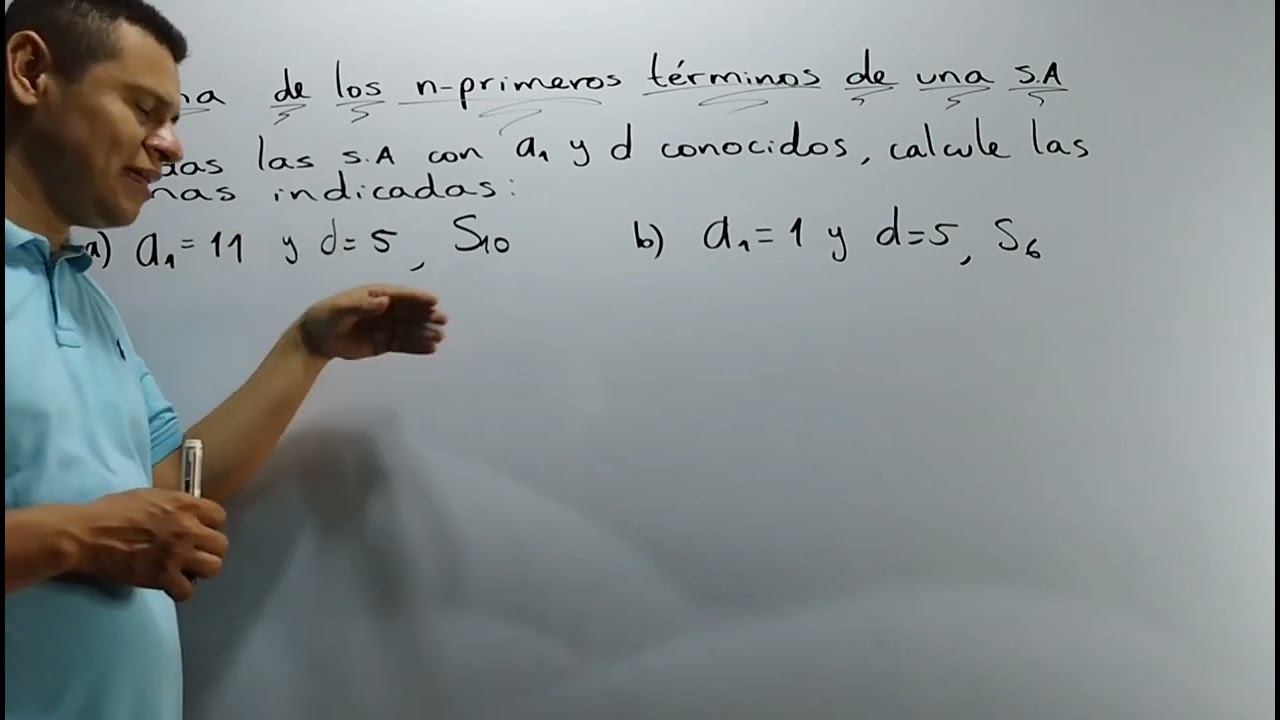 de los n-primeros términos de una S.A
las S.A con a₁ y d conocidos, calcule las
indicadas:
a) a₁ = 11 y d = 5, S₁₀ b) a₁ = 1 y d = 5, S₆